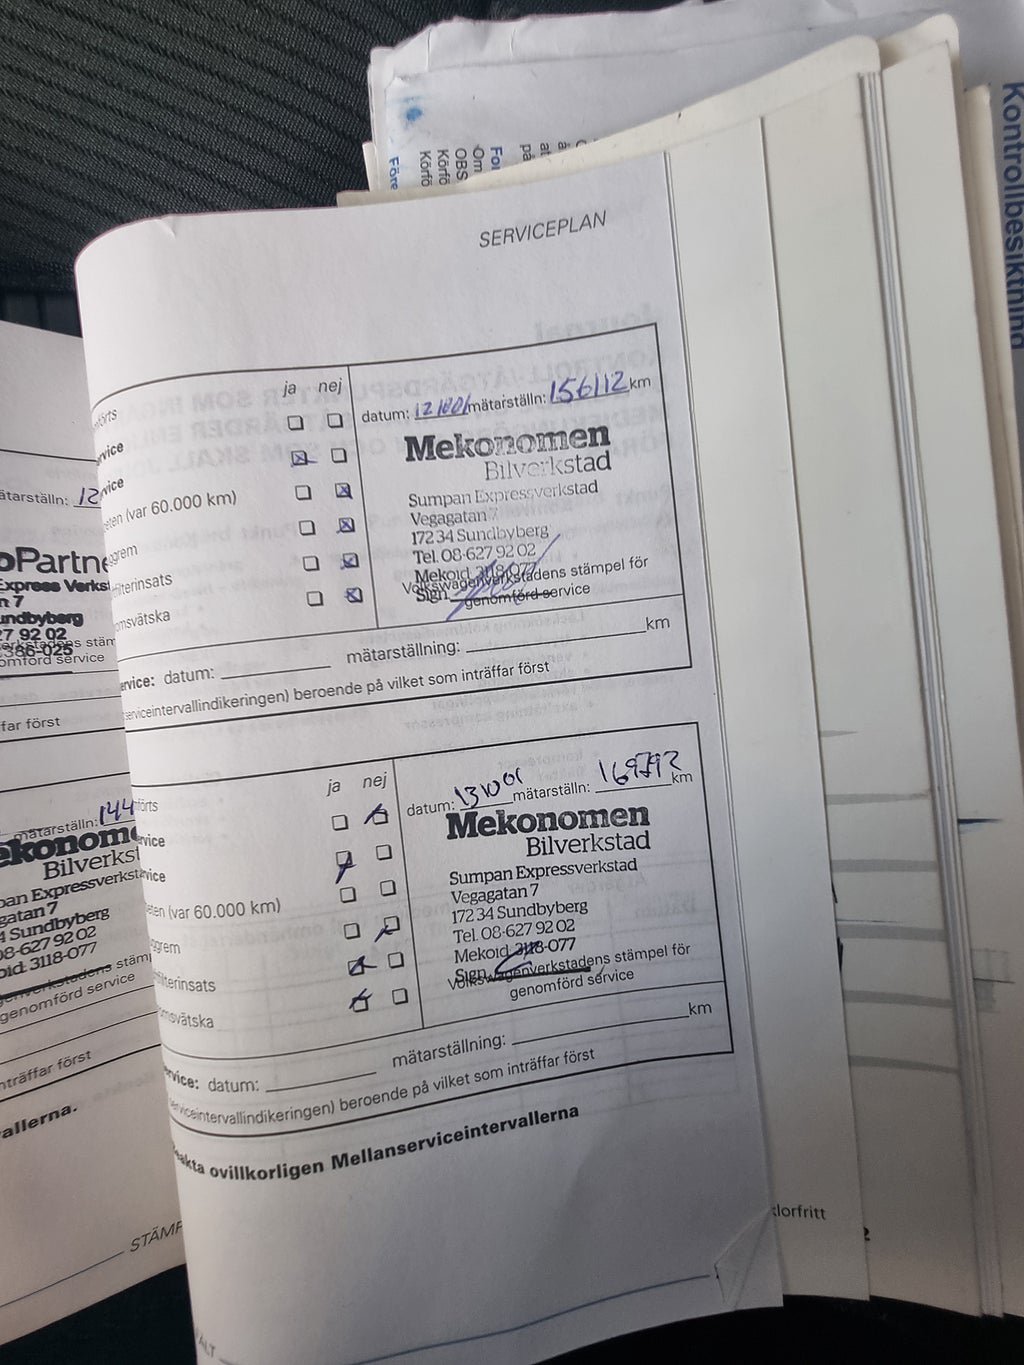 Kontrollbesiktning
Före
Körfö
Körfö
OBS
Om
på
at
SERVICEPLAN
ja nej
datum: mätarställn: 156112 km
Mekonomen
Bilverkstad
Sumpan Expressverkstad
Vegagatan 7
172 34 Sundbyberg
Tel. 08-627 92 02
Mekoid 3118-077
Volkswagenverkstadens stämpel för
Sign.
genomförd service
örts
rvice
rvice
eten (var 60.000 km)
ggrem
filterinsats
omsvätska
ervice: datum: mätarställning: km
serviceintervallindikeringen) beroende på vilket som inträffar först
ja nej
datum: mätarställn: km
Mekonomen
Bilverkstad
Sumpan Expressverkstad
Vegagatan 7
172 34 Sundbyberg
Tel. 08-627 92 02
Mekoid 3118-077
Sign.
Volkswagenverkstadens stämpel för
genomförd service
örts
rvice
rvice
eten (var 60.000 km)
ggrem
filterinsats
omsvätska
ervice: datum: mätarställning: km
serviceintervallindikeringen) beroende på vilket som inträffar först
akta ovillkorligen Mellanserviceintervallerna
klorfritt
2
ätarställn: 12
oPartne
Express Verks
n 7
undbyberg
27 92 02
386-025
omförd service
far först
mätarställn: 144
ekonome
Bilverkst
pan Expressverksta
gatan 7
4 Sundbyberg
08-627 92 02
oid: 3118-077
genverkstadens stämp
genomförd service
nträffar först
allerna.
STÄMP